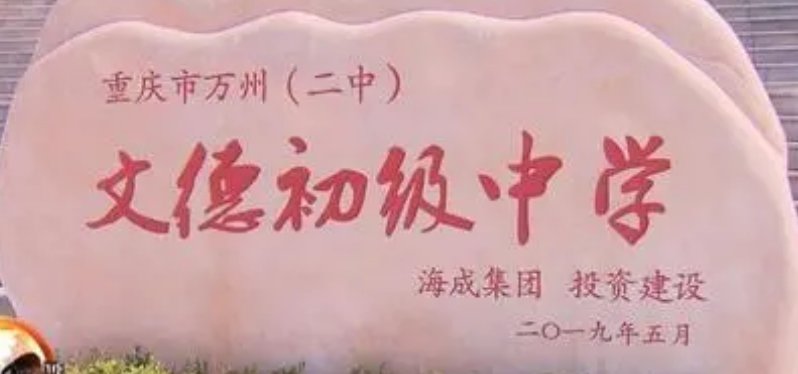 重庆市万州（二中）
文德初级中学
海成集团 投资建设
二〇一九年五月